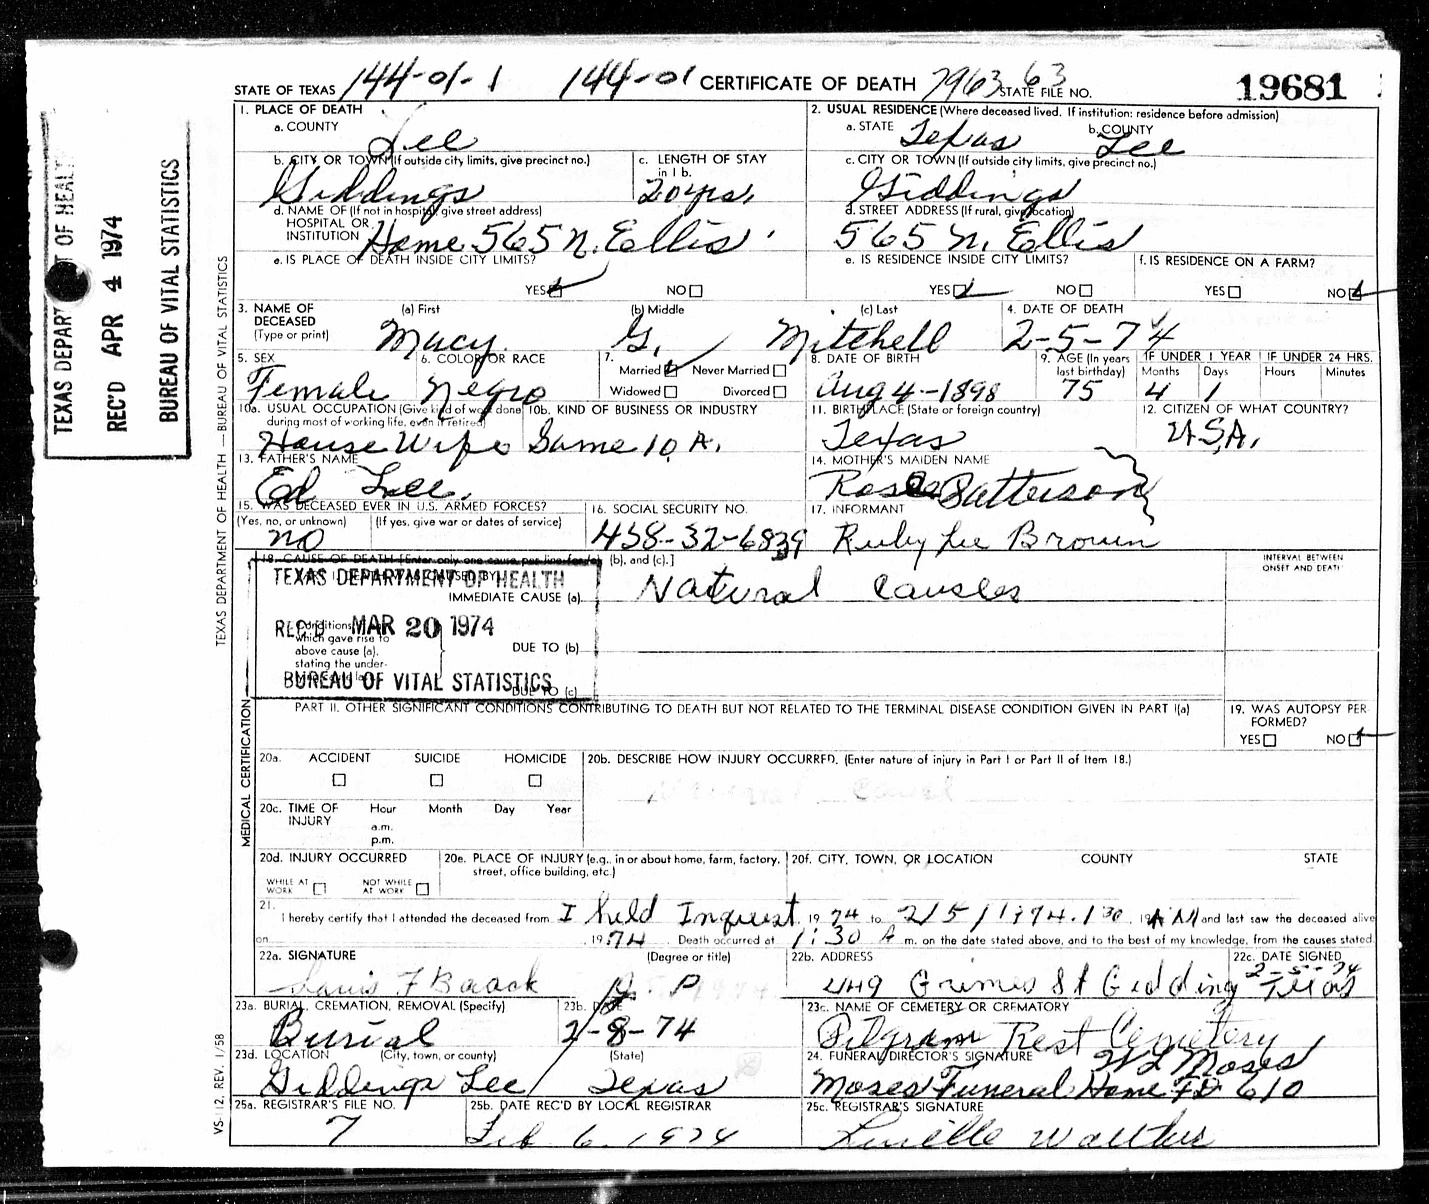 STATE OF TEXAS 144-01-1 144-01 CERTIFICATE OF DEATH 7963 63 STATE FILE NO. 19681
1. PLACE OF DEATH
a. COUNTY Lee
2. USUAL RESIDENCE (Where deceased lived. If institution: residence before admission)
a. STATE Texas b. COUNTY Lee
b. CITY OR TOWN (If outside city limits, give precinct no.) Giddings
c. LENGTH OF STAY in 1 b. 20 yrs.
c. CITY OR TOWN (If outside city limits, give precinct no.) Giddings
d. NAME OF (If not in hospital, give street address) HOSPITAL OR INSTITUTION Home 565 N. Ellis
d. STREET ADDRESS (If rural, give location) 565 N. Ellis
e. IS PLACE OF DEATH INSIDE CITY LIMITS? YES NO
e. IS RESIDENCE INSIDE CITY LIMITS? YES NO
f. IS RESIDENCE ON A FARM? YES NO
3. NAME OF DECEASED (Type or print)
(a) First Macy (b) Middle G. (c) Last Mitchell
4. DATE OF DEATH 2-5-74
5. SEX Female
6. COLOR OR RACE Negro
7. Married Never Married Widowed Divorced
8. DATE OF BIRTH Aug 4-1898
9. AGE (In years last birthday) 75
IF UNDER 1 YEAR Months 4 Days 1
IF UNDER 24 HRS. Hours Minutes
10a. USUAL OCCUPATION (Give kind of work done during most of working life, even if retired) House Wife
10b. KIND OF BUSINESS OR INDUSTRY Same 10 A.
11. BIRTHPLACE (State or foreign country) Texas
12. CITIZEN OF WHAT COUNTRY? U.S.A.
13. FATHER'S NAME Ed Lee.
14. MOTHER'S MAIDEN NAME Rose Patterson
15. WAS DECEASED EVER IN U.S. ARMED FORCES?
(Yes, no, or unknown) no (If yes, give war or dates of service)
16. SOCIAL SECURITY NO. 458-32-6839
17. INFORMANT Ruby Lee Brown
18. CAUSE OF DEATH [Enter only one cause per line for (a), (b), and (c).]
INTERVAL BETWEEN ONSET AND DEATH
IMMEDIATE CAUSE (a) Natural Causes
Conditions which gave rise to above cause (a), stating the under-
DUE TO (b)
DUE TO (c)
TEXAS DEPARTMENT OF HEALTH
REC'D MAR 20 1974
BUREAU OF VITAL STATISTICS
PART II. OTHER SIGNIFICANT CONDITIONS CONTRIBUTING TO DEATH BUT NOT RELATED TO THE TERMINAL DISEASE CONDITION GIVEN IN PART I(a)
19. WAS AUTOPSY PERFORMED? YES NO
20a. ACCIDENT SUICIDE HOMICIDE
20b. DESCRIBE HOW INJURY OCCURRED. (Enter nature of injury in Part I or Part II of Item 18.)
20c. TIME OF INJURY Hour Month Day Year
a.m.
p.m.
20d. INJURY OCCURRED
WHILE AT WORK NOT WHILE AT WORK
20e. PLACE OF INJURY (e.g., in or about home, farm, factory, street, office building, etc.)
20f. CITY, TOWN, OR LOCATION COUNTY STATE
21. I hereby certify that I attended the deceased from I held Inquest, 1974 to 2/5/1974. 1:30, 19 A.M. and last saw the deceased alive
on , 1974 Death occurred at 1:30 A m. on the date stated above, and to the best of my knowledge, from the causes stated.
22a. SIGNATURE (Degree or title) J. P
22b. ADDRESS 449 Grimes St Gidding Texas
22c. DATE SIGNED 2-5-74
23a. BURIAL, CREMATION, REMOVAL (Specify) Burial
23b. DATE 2-8-74
23c. NAME OF CEMETERY OR CREMATORY Pilgram Rest Cemetery
23d. LOCATION (City, town, or county) (State) Giddings Lee Texas
24. FUNERAL DIRECTOR'S SIGNATURE W L Moses
Moses Funeral Home FD 610
25a. REGISTRAR'S FILE NO. 7
25b. DATE REC'D BY LOCAL REGISTRAR Feb 6, 1974
25c. REGISTRAR'S SIGNATURE
TEXAS DEPARTMENT OF HEALTH
REC'D APR 4 1974
BUREAU OF VITAL STATISTICS
TEXAS DEPARTMENT OF HEALTH — BUREAU OF VITAL STATISTICS
MEDICAL CERTIFICATION
VS-112, REV. 1/58